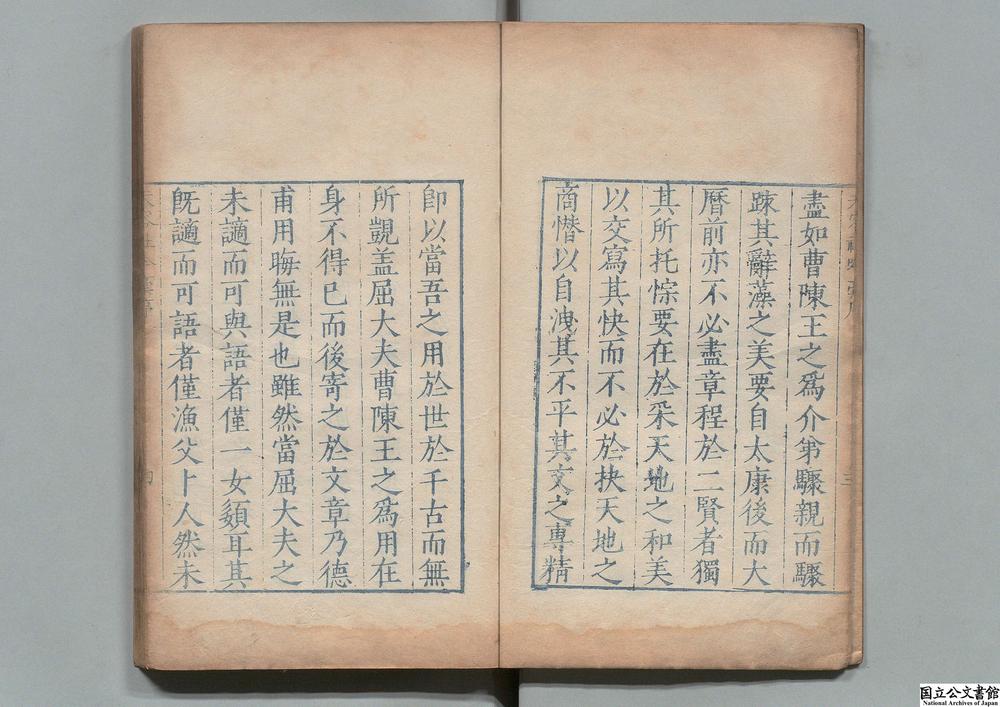 盡如曹陳王之爲介第驟親而驟
疎其辭藻之美要自太康後而大
曆前亦不必盡章程於二賢者獨
其所托悰要在於采天地之和美
以交寫其快而不必於抉天地之
商憯以自洩其不平其文之專精
卽以當吾之用於世於千古而無
所覬盖屈大夫曹陳王之爲用在
身不得已而後寄之於文章乃德
甫用晦無是也雖然當屈大夫之
未讁而可與語者僅一女顉耳其
旣讁而可語者僅漁父卜人然未
国立公文書館
National Archives of Japan